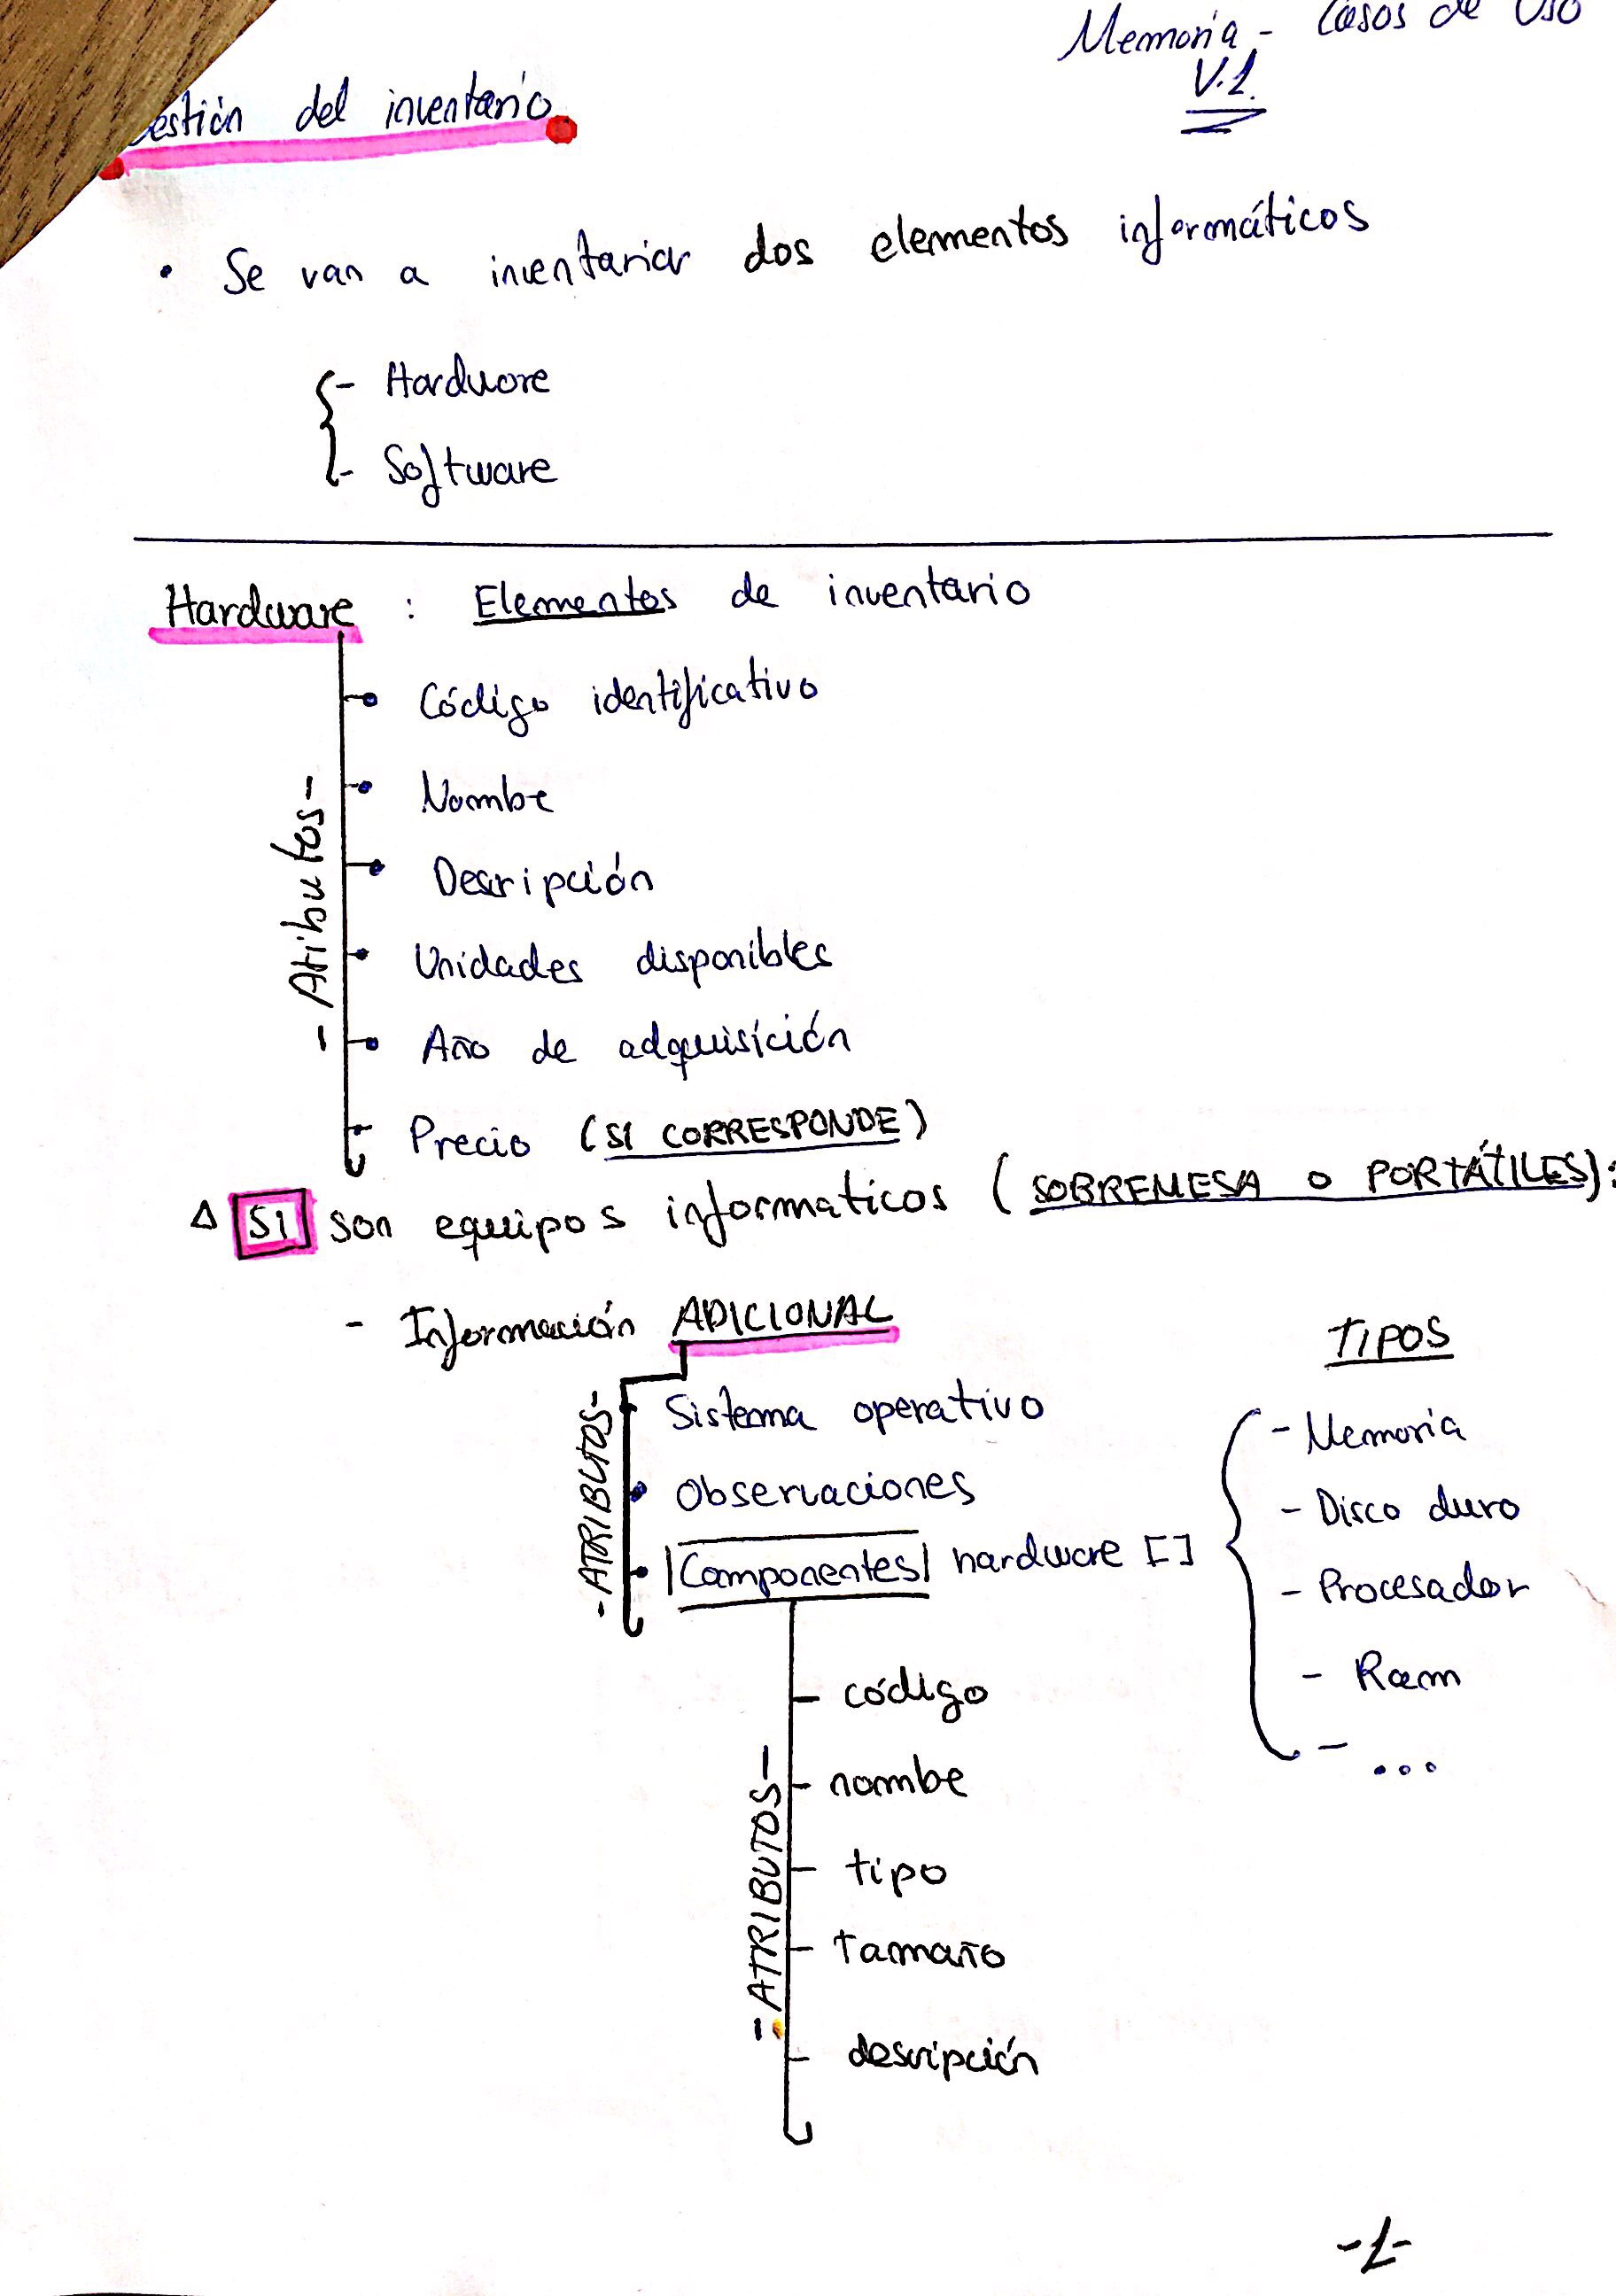 Memoria - Casos de Uso
V.1.
estión del inventario
• Se van a inventariar dos elementos informáticos
- Hardware
- Software
Hardware : Elementos de inventario
- Atributos -
Código identificativo
Nombre
Descripción
Unidades disponibles
Año de adquisición
Precio (SI CORRESPONDE)
Δ SI son equipos informaticos (SOBREMESA O PORTÁTILES):
- Información ADICIONAL
- ATRIBUTOS -
Sistema operativo
• Observaciones
• |Componentes| hardware []
TIPOS
- Memoria
- Disco duro
- Procesador
- Ram
- ...
- ATRIBUTOS -
- código
- nombe
- tipo
- Tamaño
- descripción
-1-